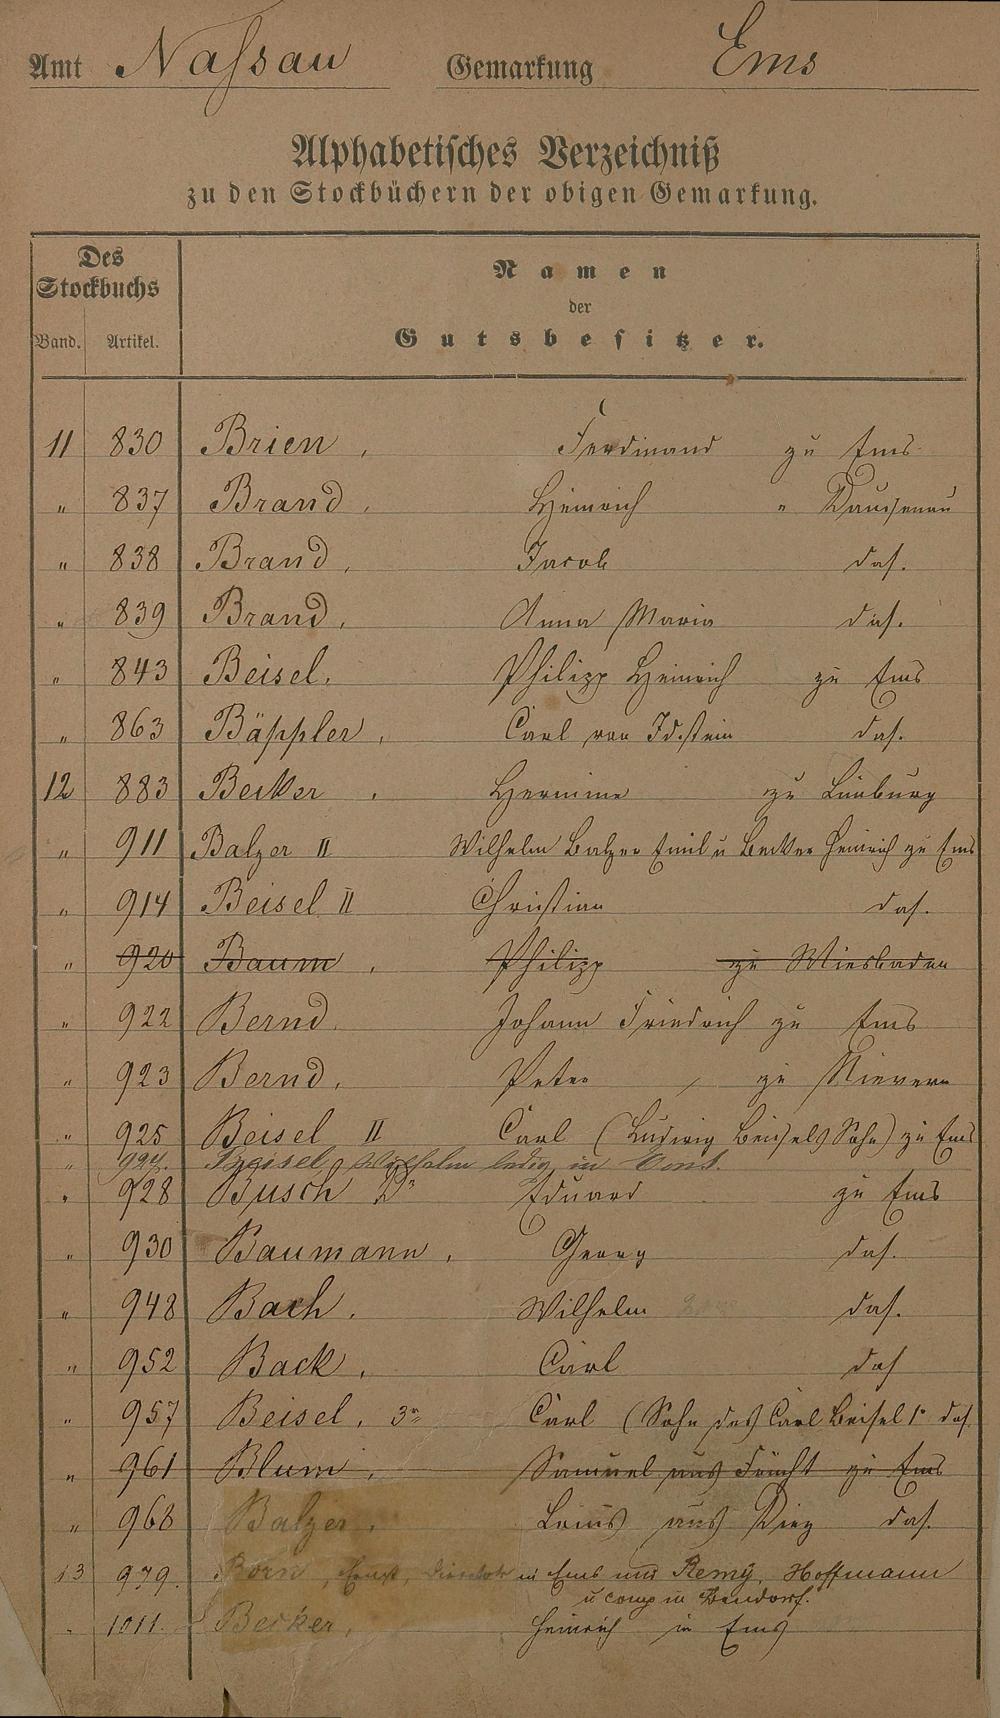 Amt Naſsau Gemarkung Ems
Alphabetiſches Verzeichniß
zu den Stockbüchern der obigen Gemarkung.
Des
Stockbuchs
Band. Artikel.
Namen
der
Gutsbeſitzer.
11 830 Brien, Ferdinand zu Ems
" 837 Brand, Heinrich " Dausenau
" 838 Brand, Jacob das.
" 839 Brand, Anna Maria das.
" 843 Beisel, Philipp Heinrich zu Ems
" 863 Bäppler, Carl von Idstein das.
12 883 Becker, Hermine zu Limburg
" 911 Balzer II Wilhelm Balzer Emil u Becker Heinrich zu Ems
" 914 Beisel II Christian das.
" 920 Baum, Philipp zu Wiesbaden
" 922 Bernd, Johann Friedrich zu Ems
" 923 Bernd, Peter, zu Nievern
" 925 Beisel II Carl (Ludwig Beisels Sohn) zu Ems
" 927. Beisel, Wilhelm ledig in Ems.
" 928 Busch Dr Eduard zu Ems
" 930 Baumann, Georg das.
" 948 Bach, Wilhelm das.
" 952 Back, Carl das
" 957 Beisel, 3r Carl (Sohn des Carl Beisel 1r das.
" 961 Blum, Samuel aus Frücht zu Ems
" 968 Balzer, Louis aus Diez das.
13 979. Born, Ernst, Director in Ems und Remy, Hoffmann
u comp in Bendorf.
" 1011. Becker, Heinrich in Ems